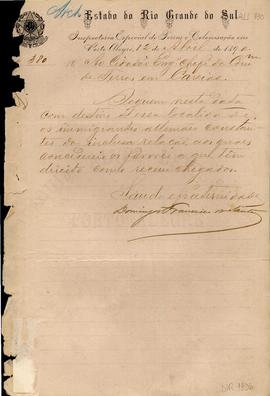 Arch
Estado do Rio Grande do Sul
Inspectoria Especial de Terras e Colonisação em
Porto Alegre, 12 de Abril de 1890
380
Ao Cidadão Engº Chefe da Com
de Terras em Caxias.
Seguem nesta data
com destino a essa localidade
os immigrantes allemães constan
tes da inclusa relação, aos quaes
concedereis os favores a que têm
direito como recem chegados.
Saude e fraternidade
Domingos Francisco